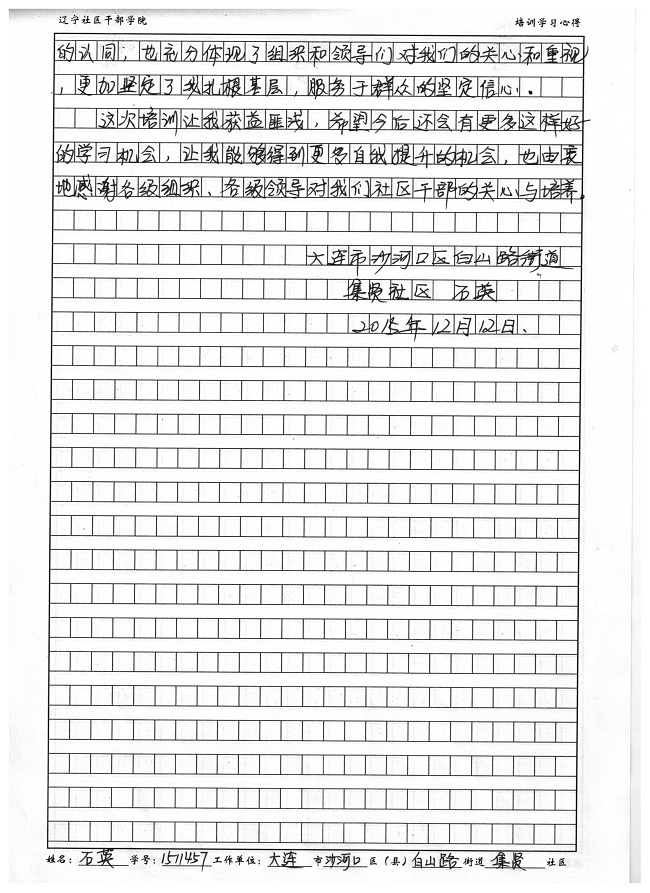 辽宁社区干部学院 培训学习心得
的认同；也充分体现了组织和领导们对我们的关心和重视
，更加坚定了我扎根基层，服务于群众的坚定信心。
这次培训让我获益匪浅，希望今后还会有更多这样好
的学习机会，让我能够得到更多自我提升的机会，也由衷
地感谢各级组织、各级领导对我们社区干部的关心与培养。
大连市沙河口区白山路街道
集贤社区 石英
2015年12月12日.
姓名：石英 学号：1511457 工作单位：大连 市 沙河口 区（县）白山路 街道 集贤 社区